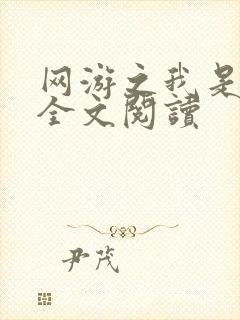 网游之我是
全文閱讀
尹茂